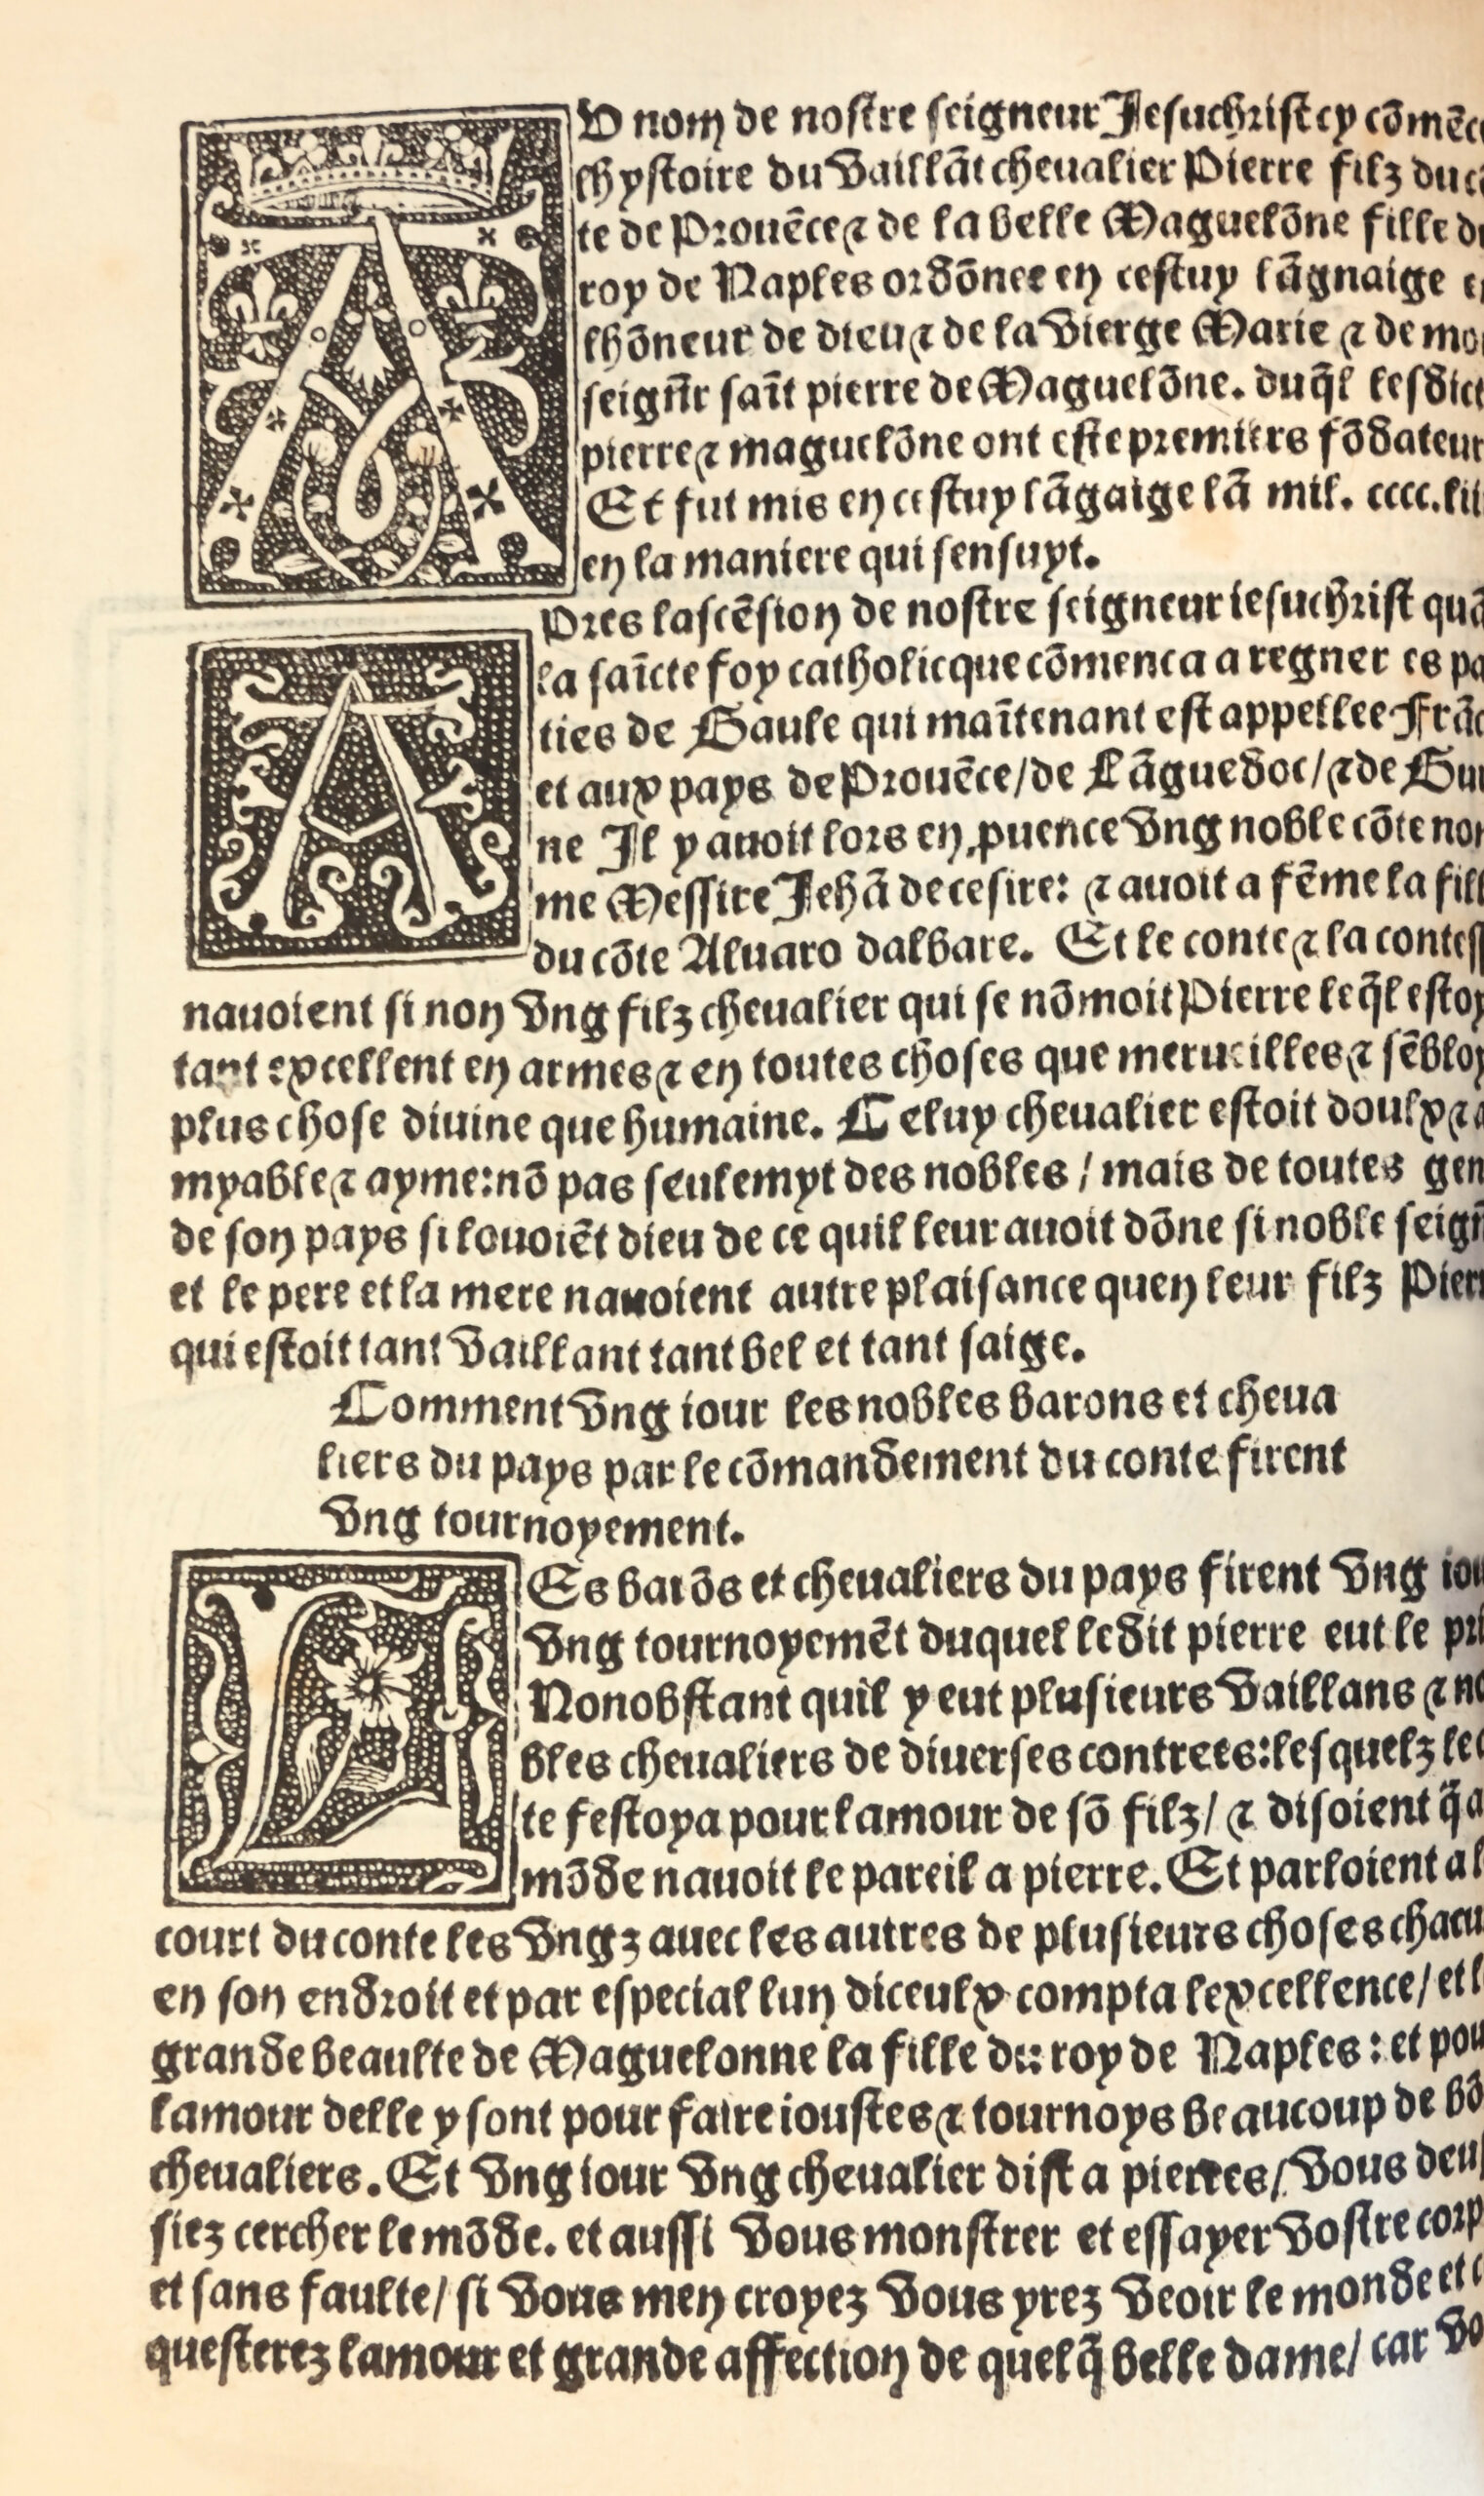 AU nom de nostre seigneur Jesuchrist cy cõmēce
lhystoire du vaillãt cheualier Pierre filz du cõ
te de Prouēce ⁊ de la belle Maguelõne fille du
roy de Naples ordõnee en cestuy lãgnaige en
lhõneur de dieu ⁊ de la vierge Marie ⁊ de mon
seigñr saīt pierre de Maguelõne. duq̄l lesdict
pierre ⁊ maguelõne ont este premiers fõdateur
Et fut mis en cestuy lãgaige lã mil. cccc. liii
en la maniere qui sensuyt.
APres lascēsion de nostre seigneur iesuchrist quã
la saīcte foy catholicque cõmenca a regner es pa
ties de Gaule qui maītenant est appellee Frãc
et aux pays de Prouēce/de Lãguedoc/⁊ de Guy
ne Il y auoit lors en ꝓuence vng noble cõte nom
me Messire Jehã de cesire: ⁊ auoit a fēme la fill
du cõte Aluaro dalbare. Et le conte ⁊ la contess
nauoient si non vng filz cheualier qui se nõmoit Pierre leq̄l estoy
tant excellent en armes ⁊ en toutes choses que merueilles ⁊ sēbloy
plus chose diuine que humaine. Celuy cheualier estoit doulx ⁊ a
myable ⁊ ayme: nõ pas seulemyt des nobles / mais de toutes gen
de son pays si louoiēt dieu de ce quil leur auoit dõne si noble seigñ
et le pere et la mere nauoient autre plaisance quen leur filz Pierr
qui estoit tant vaillant tant bel et tant saige.
Comment vng iour les nobles barons et cheua
liers du pays par le cõmandement du conte firent
vng tournoyement.
LEs barõs et cheualiers du pays firent vng iou
vng tournoyemēt duquel ledit pierre eut le pri
Nonobstant quil y eut plusieurs vaillans ⁊ no
bles cheualiers de diuerses contrees: lesquelz le c
te festoya pour lamour de sõ filz/ ⁊ disoient q̄ a
mõde nauoit le pareil a pierre. Et parloient a l
court du conte les vngz auec les autres de plusieurs choses chacu
en son endroit et par especial lun diceulx compta lexcellence/ et l
grande beaulte de Maguelonne la fille du roy de Naples: et pou
lamour delle y sont pour faire ioustes ⁊ tournoys beaucoup de bõ
cheualiers. Et vng iour vng cheualier dist a pierres/ vous deus
siez cercher le mõde. et aussi vous monstrer et essayer vostre corp
et sans faulte/ si vous men croyez vous yrez veoir le monde et c
questerez lamour et grande affection de quelq̄ belle dame/ car vo